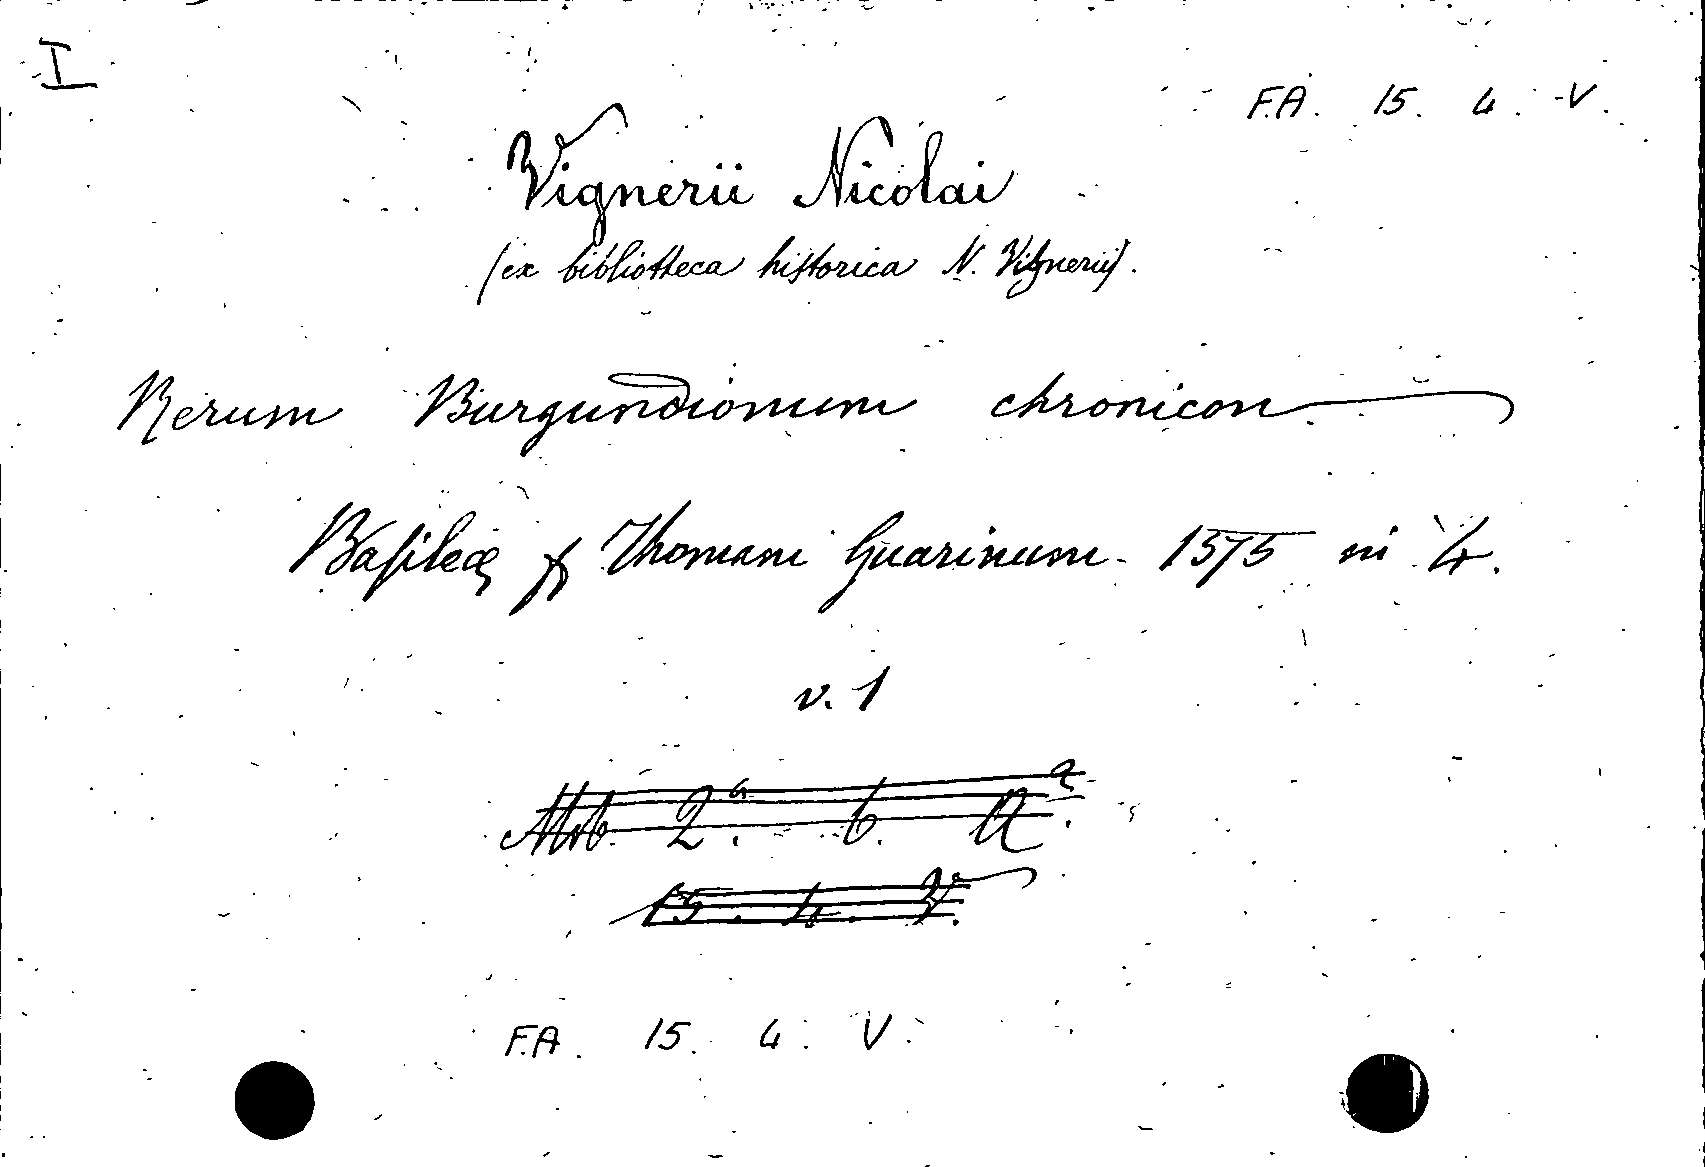 I
F.A. 15. 4. V.
Vignerii Nicolai
(ex bibliotheca historica N. Vignerii).
Rerum Burgundionum chronicon
Basileæ Thomam Guarinum 1575 in 4.
v. 1
2.ª 6. Aª.
15. 4. V.
F.A. 15. 4. V.